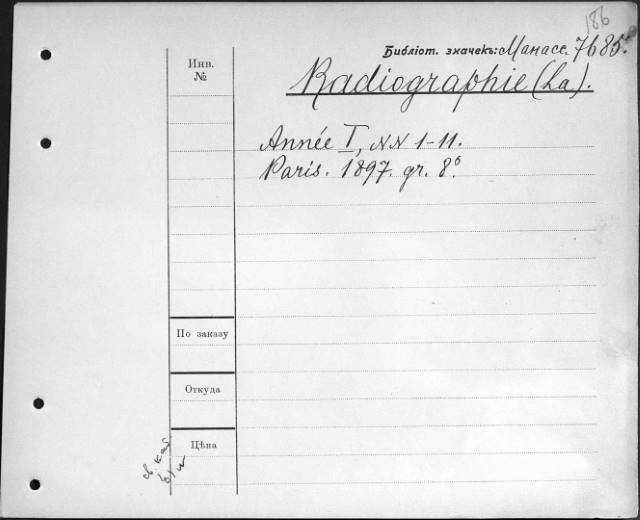 186
Библіот. значекъ: Манасс. 7685.
Инв.
№
Radiographie (La).
Année I, NN 1-11.
Paris. 1897. gr. 8º.
По заказу
Откуда
Цѣна